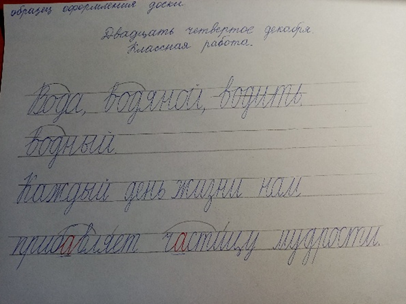 образец оформления доски
Двадцать четвертое декабря.
Классная работа.
Вода, водяной, водить
водный.
Каждый день жизни нам
прибавляет частицу мудрости.